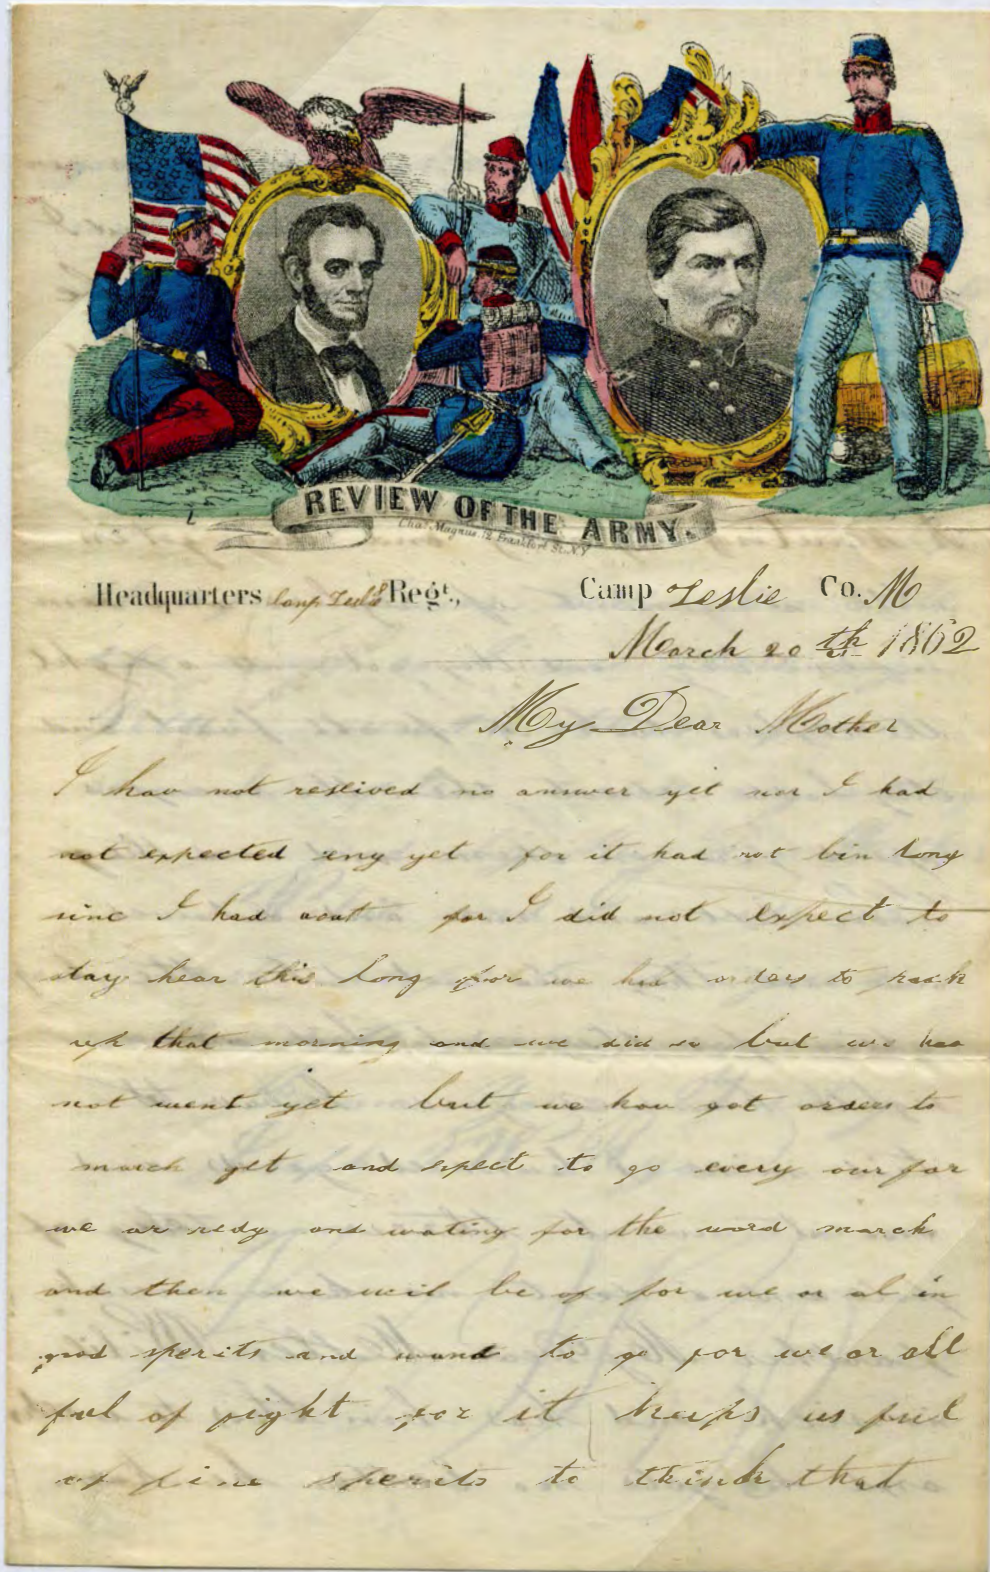 REVIEW OF THE ARMY.
Chas. Magnus, 12 Frankfort St. N.Y.
Headquarters Regt., Camp Leslie Co. M
March 20 th 1862
My Dear Mother
I hav not reseived no answer yet nor I had
not expected eny yet for it had not bin long
sinc I had for I did not expect to
stay hear this long for we had orders to pack
up that morning and we did so but we has
not went yet but we hav got orders to
march yet and expect to go every our for
we ar redy and wating for the word march
and then we will be of for we or al in
good sperits and wand to go for we or all
ful of fight for it keeps us ful
of fine sperits to think that